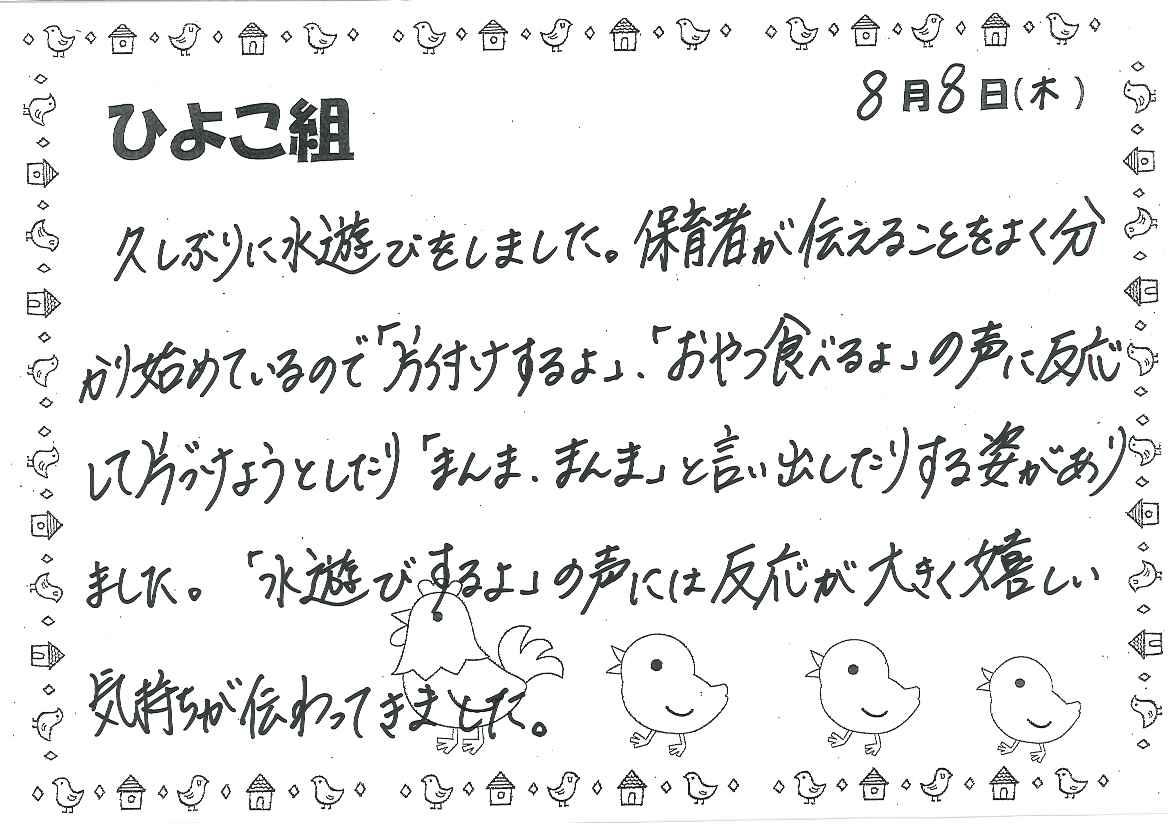 ひよこ組
8月8日(木)
久しぶりに水遊びをしました。保育者が伝えることをよく分
かり始めているので「片付けするよ」、「おやつ食べるよ」の声に反応
して片づけようとしたり「まんま、まんま」と言い出したりする姿があり
ました。「水遊びするよ」の声には反応が大きく嬉しい
気持ちが伝わってきました。